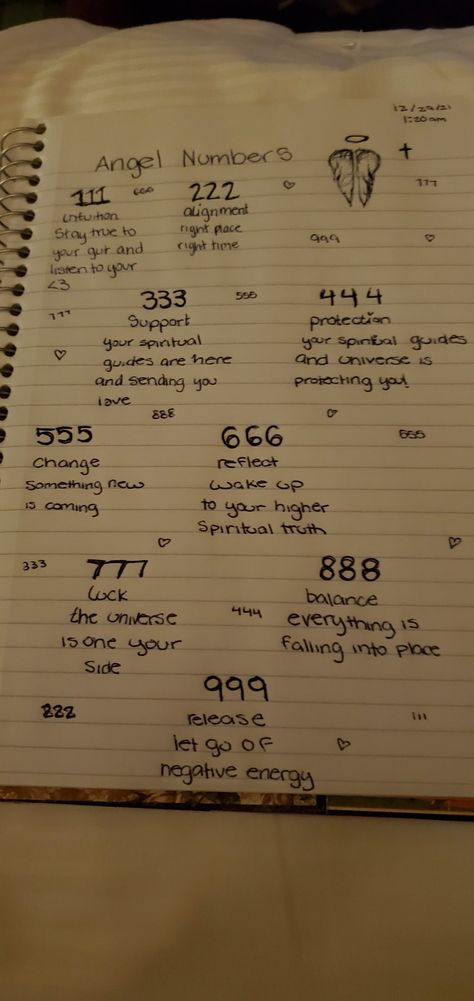 12/29/21
1:20am
Angel Numbers
777
111 666 222
intuition
Stay true to
your gut and
listen to your
<3
alignment
right place
right time
999
777
333 555 444
Support
your spiritual
guides are here
and sending you
love
protection
your spiritual guides
and universe is
protecting you!
888
555 666 555
change
something new
is coming
reflect
wake up
to your higher
Spiritual truth
333 777 888
luck
the universe
is one your
side
444
balance
everything is
falling into place
999
222 111
release
let go of
negative energy